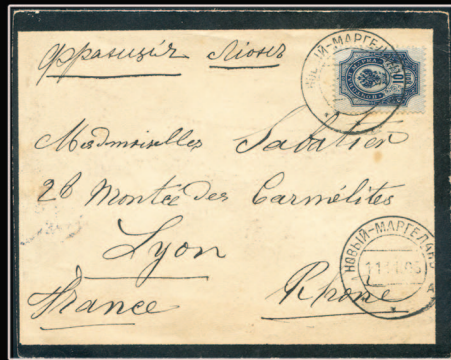 Франція Ліонъ
НОВЫЙ-МАРГЕЛАНЪ
10
Mesdmoiselles Sabatier
28 Montée des Carmélites
Lyon
France Rhône
НОВЫЙ-МАРГЕЛАНЪ